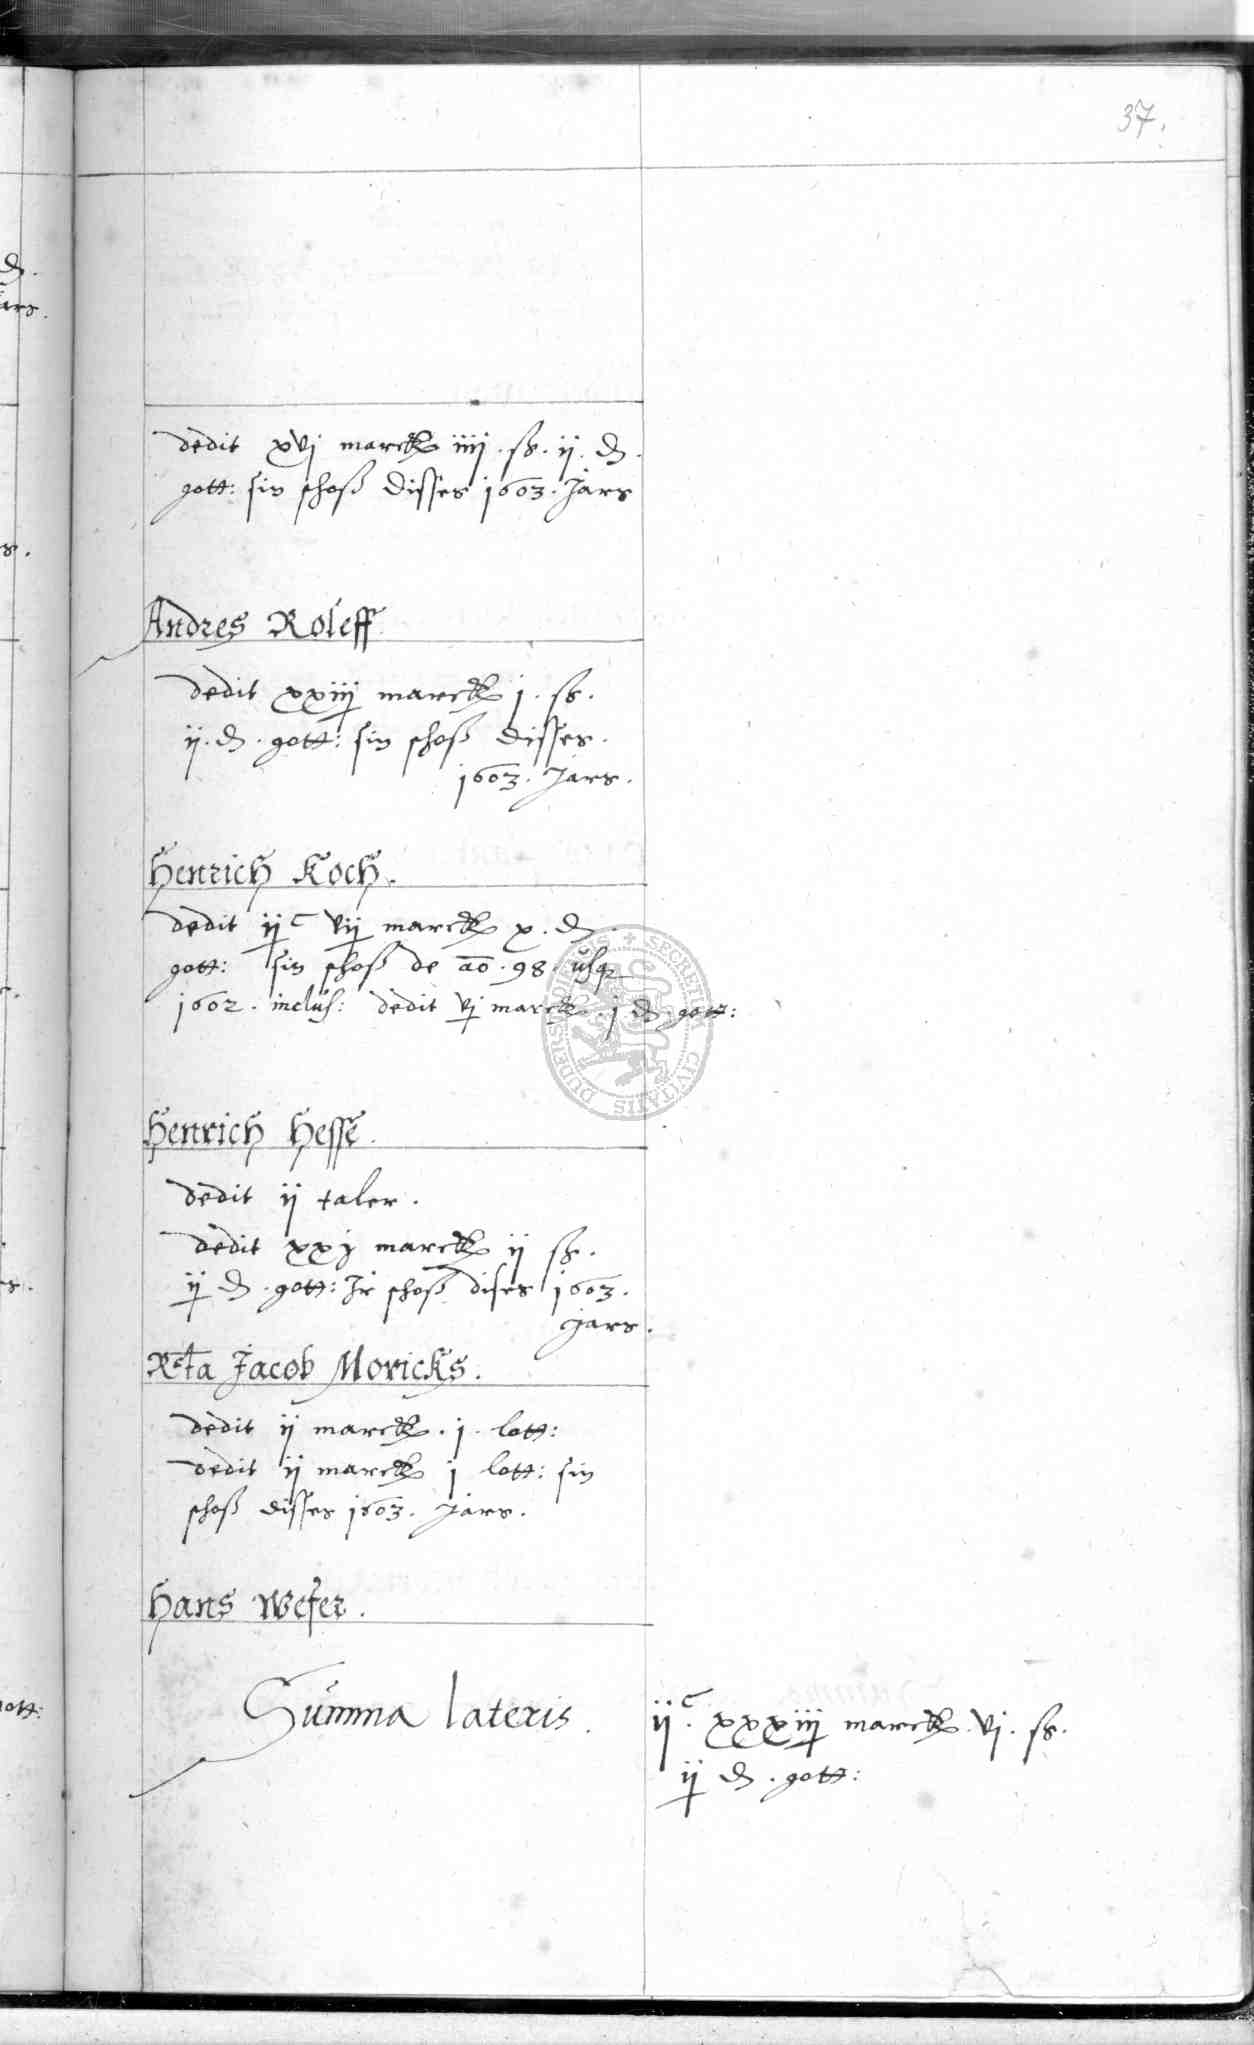 37.
dedit xvj marck iiij. ß. ij. ₰.
gott: sin schoß disses 1603. Jars
Andres Roleff
dedit xxiij marck j. ß.
ij. ₰. gott: sin schoß disses.
1603. Jars.
Henrich Koch.
dedit ijc vij marck x. ₰.
gott: sin schoß de ao. 98. usq
1602. inclus: dedit vj marck. j ₰ gott:
Henrich Hesse.
dedit ij taler.
dedit xxj marck ij ß.
ij ₰. gott: Jr schoß dises 1603.
Jars.
Rcta Jacob Moricks.
dedit ij marck. j. lott:
dedit ij marck j lott: sin
schoß disses 1603. Jars.
Hans Wefer.
Summa lateris. ijc. xxxiij marck. vj. ß.
ij ₰. gott:
SECRETUM CIVITATIS